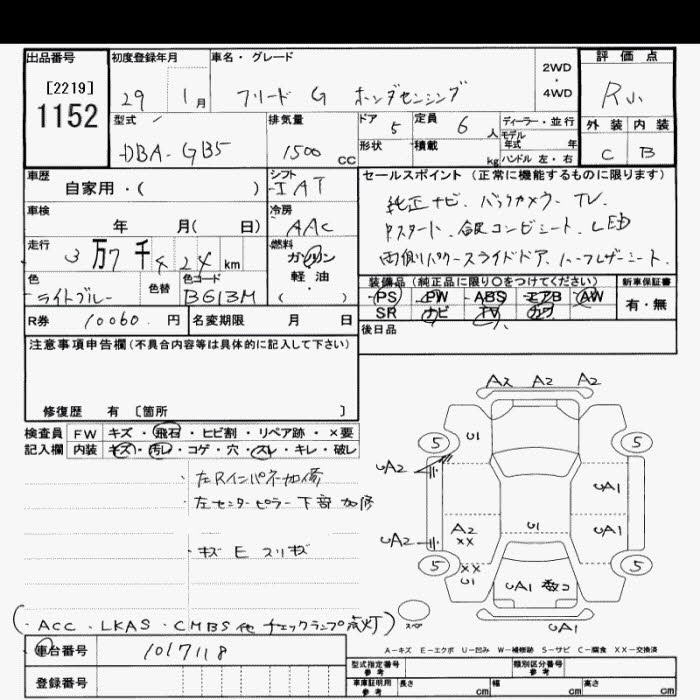 出品番号 初度登録年月 車名・グレード 2WD・4WD 評価点
[2219]
1152
29 1月 フリード G ホンダセンシング R小
型式 排気量 ドア 定員 ディーラー・並行 外装 内装
DBA-GB5 1500 CC 5 6人 モデル年式 年 C B
形状 積載 kg ハンドル 左・右
車歴 シフト セールスポイント (正常に機能するものに限ります)
自家用・( ) IAT
純正ナビ、バックカメラ、TV、
車検 冷房
年 月( 日) AAC
Pスタート、合皮コンビシート、LED
走行 燃料
3万7千424km ガソリン
両側パワースライドドア、ハーフレザーシート、
軽・油
( )
色 色替 色コード 装備品 (純正品に限り○をつけてください) 新車保証書
ライトブルー BG13M PS PW ABS エアB AW 有・無
SR ナビ TV カワ
R券 10060 円 名変期限 月 日 後日品
注意事項申告欄(不具合内容等は具体的に記入して下さい)
修復歴 有 〔箇所 〕
検査員記入欄 FW キズ・飛石・ヒビ割・リペア跡・×要
内装 キズ・汚レ・コゲ・穴・スレ・キレ・破レ
・左Rインパネ加修
・左センターピラー下部加修
・キズ E スリキズ
(・ACC・LKAS・CMBS他 チェックランプ点灯)
AX A2 A2
5 U1 5
UA2 UA1
UA2 A2 XX U1 UA1
5 XX U1 UA1 数コ 5
スペア UA1
A-キズ E-エクボ U-凹み W-補修跡 S-サビ C-腐食 XX-交換済
車台番号 1017118
登録番号
型式指定番号 参考 類別区分番号 参考
車庫証明用 参考 長さ cm 幅 cm 高さ cm